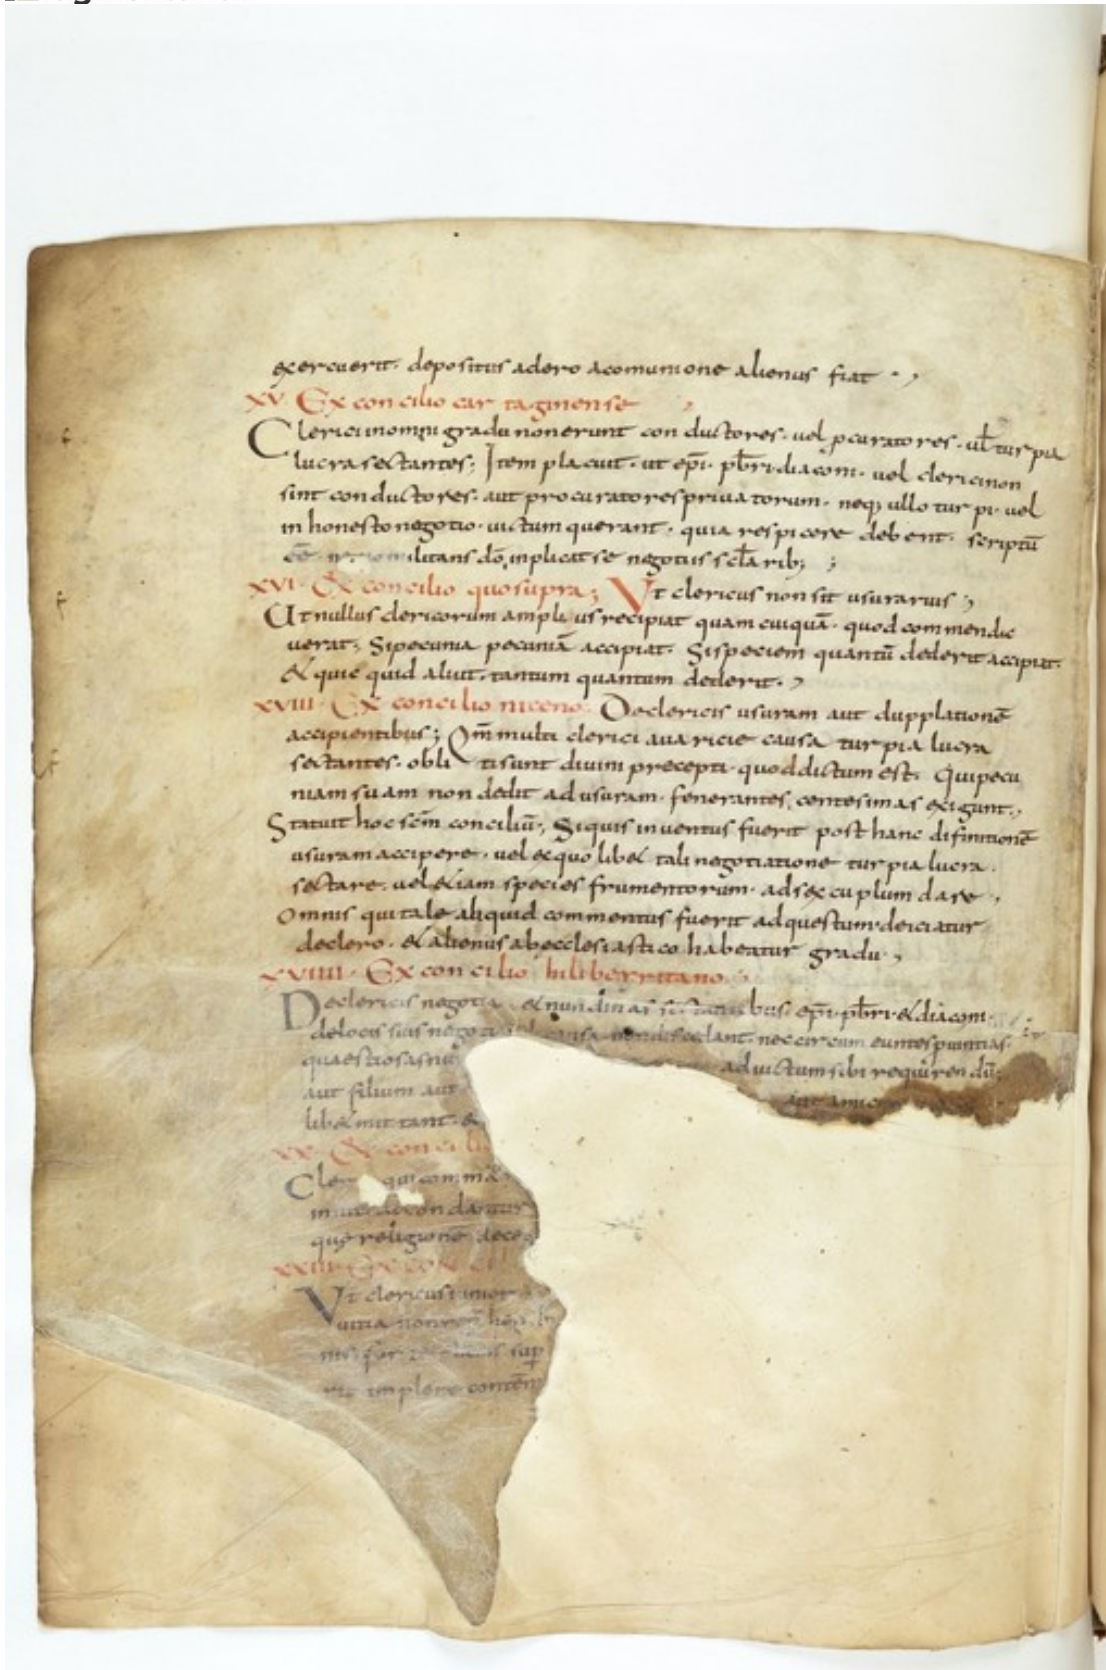 exercuerit· depositus a clero acomunione alienus fiat
XV Ex concilio cartaginense
Clerici inomni gradu non erunt conductores· vel pcuratores· ul turpia
lucra sectantes; Item placuit· ut epi· pbri· diaconi· vel clerici non
sint conductores· aut procuratores privatorum· neq; ullo turpi· vel
inhonesto negotio· victum querant· quia respicere debent· scriptū
militans dō inplicat se negotiis sclarib;
XVI· Ex concilio quo supra; Ut clericus non sit usurarius;
Ut nullus clericorum amplius recipiat quam cuiquā· quod commendа
verat; Si pecunia pecuniā accipiat· Si speciem quantū dederit accipiat·
Et quic quid aliut· tantum quantum dederit·
XVIII· Ex concilio niceno· De clericis usuram aut dupplationē
accipientibus; Qm multi clerici avaricie causa turpia lucra
sectantes· obliti sunt divini precepti· quod dictum est· Qui pecu
niam suam non dedit ad usuram· fenerantes, centesimas exigunt·,
Statuit hoc scm conciliū; Siquis inventus fuerit post hanc difinitionē
usuram accipere· vel ex quolibet tali negotiatione turpia lucra
sectare· vel etiam species frumentorum· ad sexcuplum dare·,
Omnis qui tale aliquid commentus fuerit ad questum· deiciatur
declero· et alienus ab ecclesiastico habeatur gradu·,
XVIIII· Ex concilio hiliberritano·
De clericis negotia et nundinas epi· pbri· et diaconi·
de locis suis nec circum euntes pvintias·
quaestiosas ad victum sibi requirendū;
aut filium aut
libet mittant·
XX· Ex concili
Cle qui comma
que religionē dece
XXIII· Ex conci
Ut clericus
vitia non
rit implere contēp